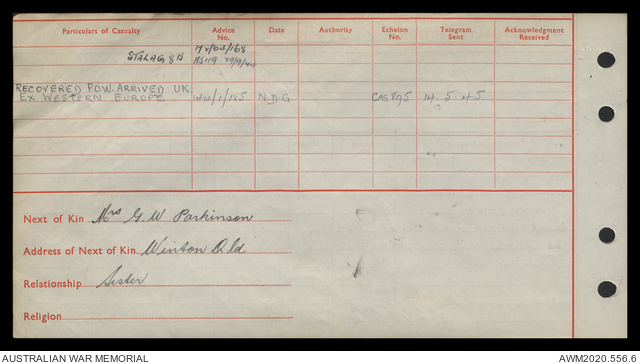 Particulars of Casualty Advice No. Date Authority Echelon No. Telegram Sent Acknowledgment Received
STALAG 8B
RECOVERED P.O.W. ARRIVED U.K.
EX WESTERN EUROPE N.D.G CAS 895 14.5.45
Next of Kin Mrs G. W Parkinson
Address of Next of Kin Winton Qld
Relationship Sister
Religion
AUSTRALIAN WAR MEMORIAL AWM2020.556.6